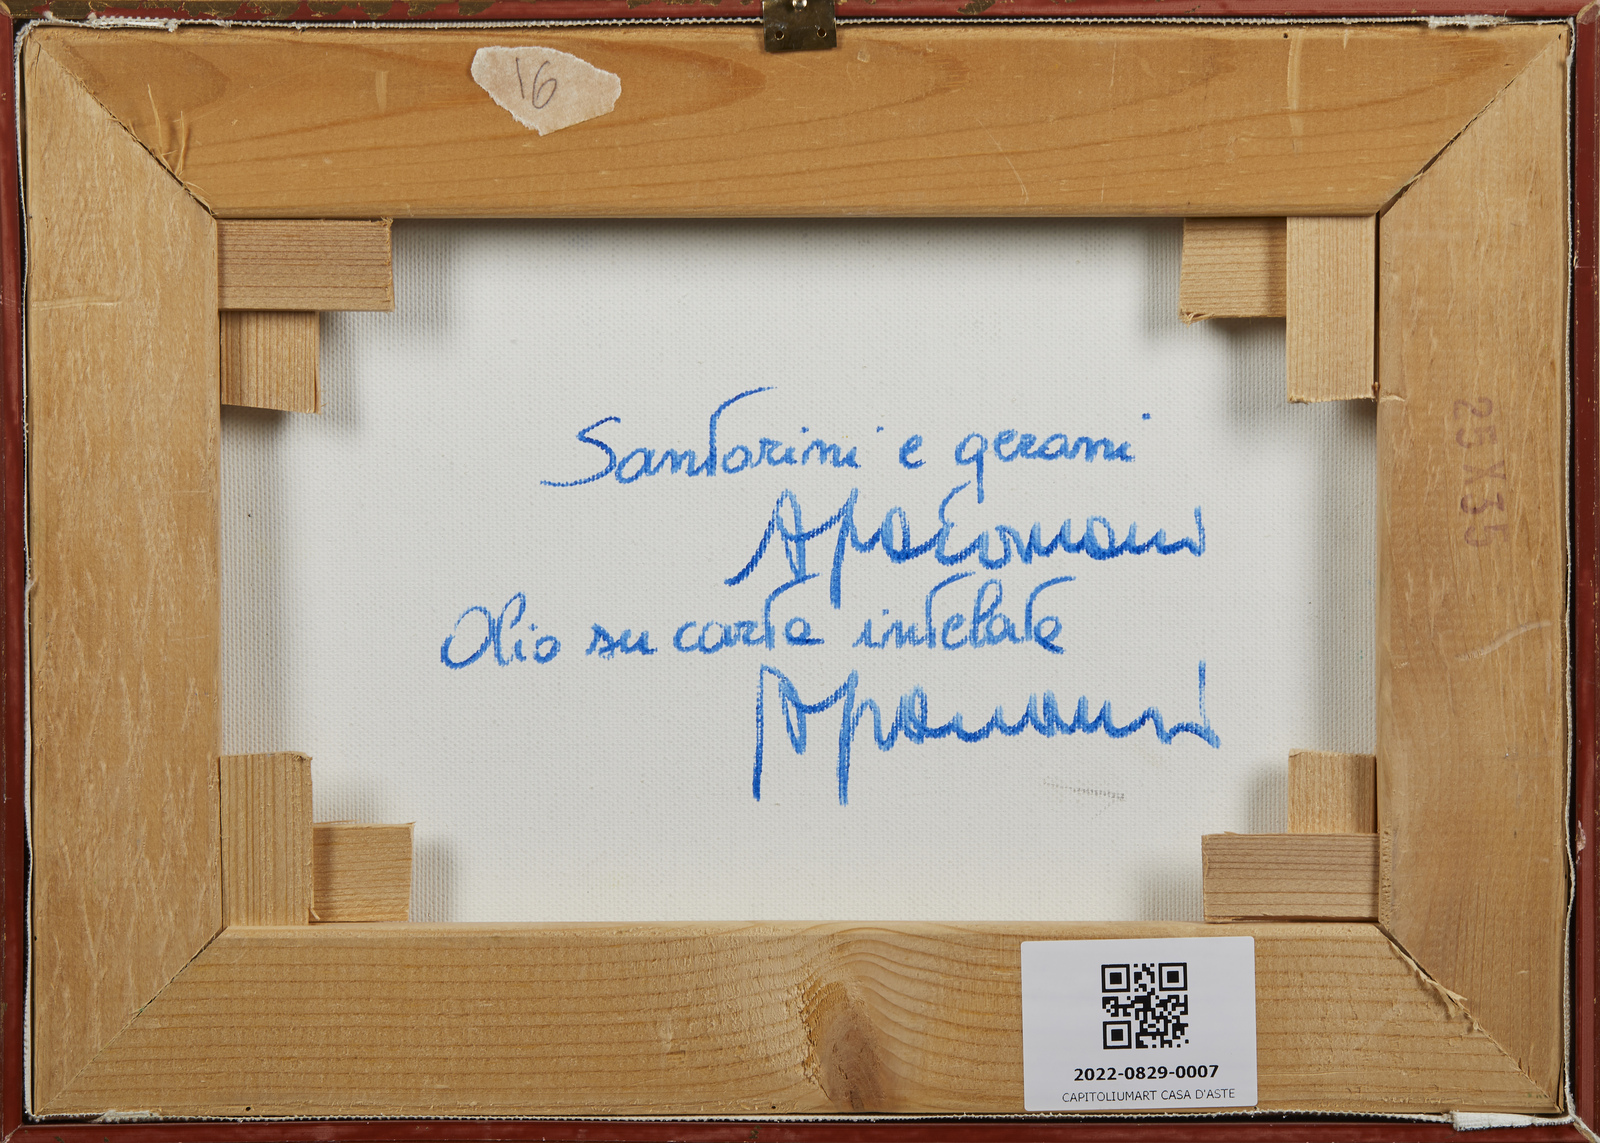 16
Santorini e gerami
Olio su carta intelata
25X35
2022-0829-0007
CAPITOLIUMART CASA D'ASTE